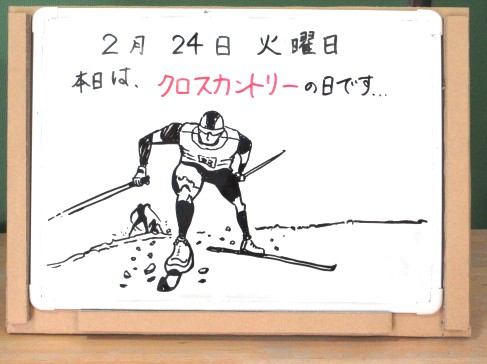 2月 24日 火曜日
本日は、クロスカントリーの日です...